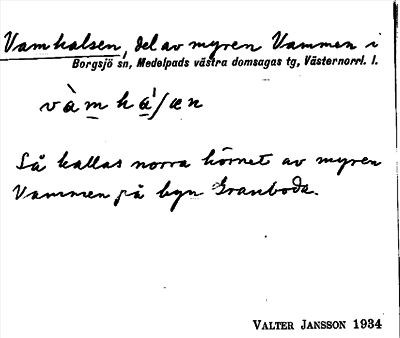 Vamhalsen, del av myren Vammen i
Borgsjö sn, Medelpads västra domsagas tg, Västernorrl. l.
vàm há/sæn
Så kallas norra hörnet av myren
Vammen på byn Granboda.
VALTER JANSSON 1934